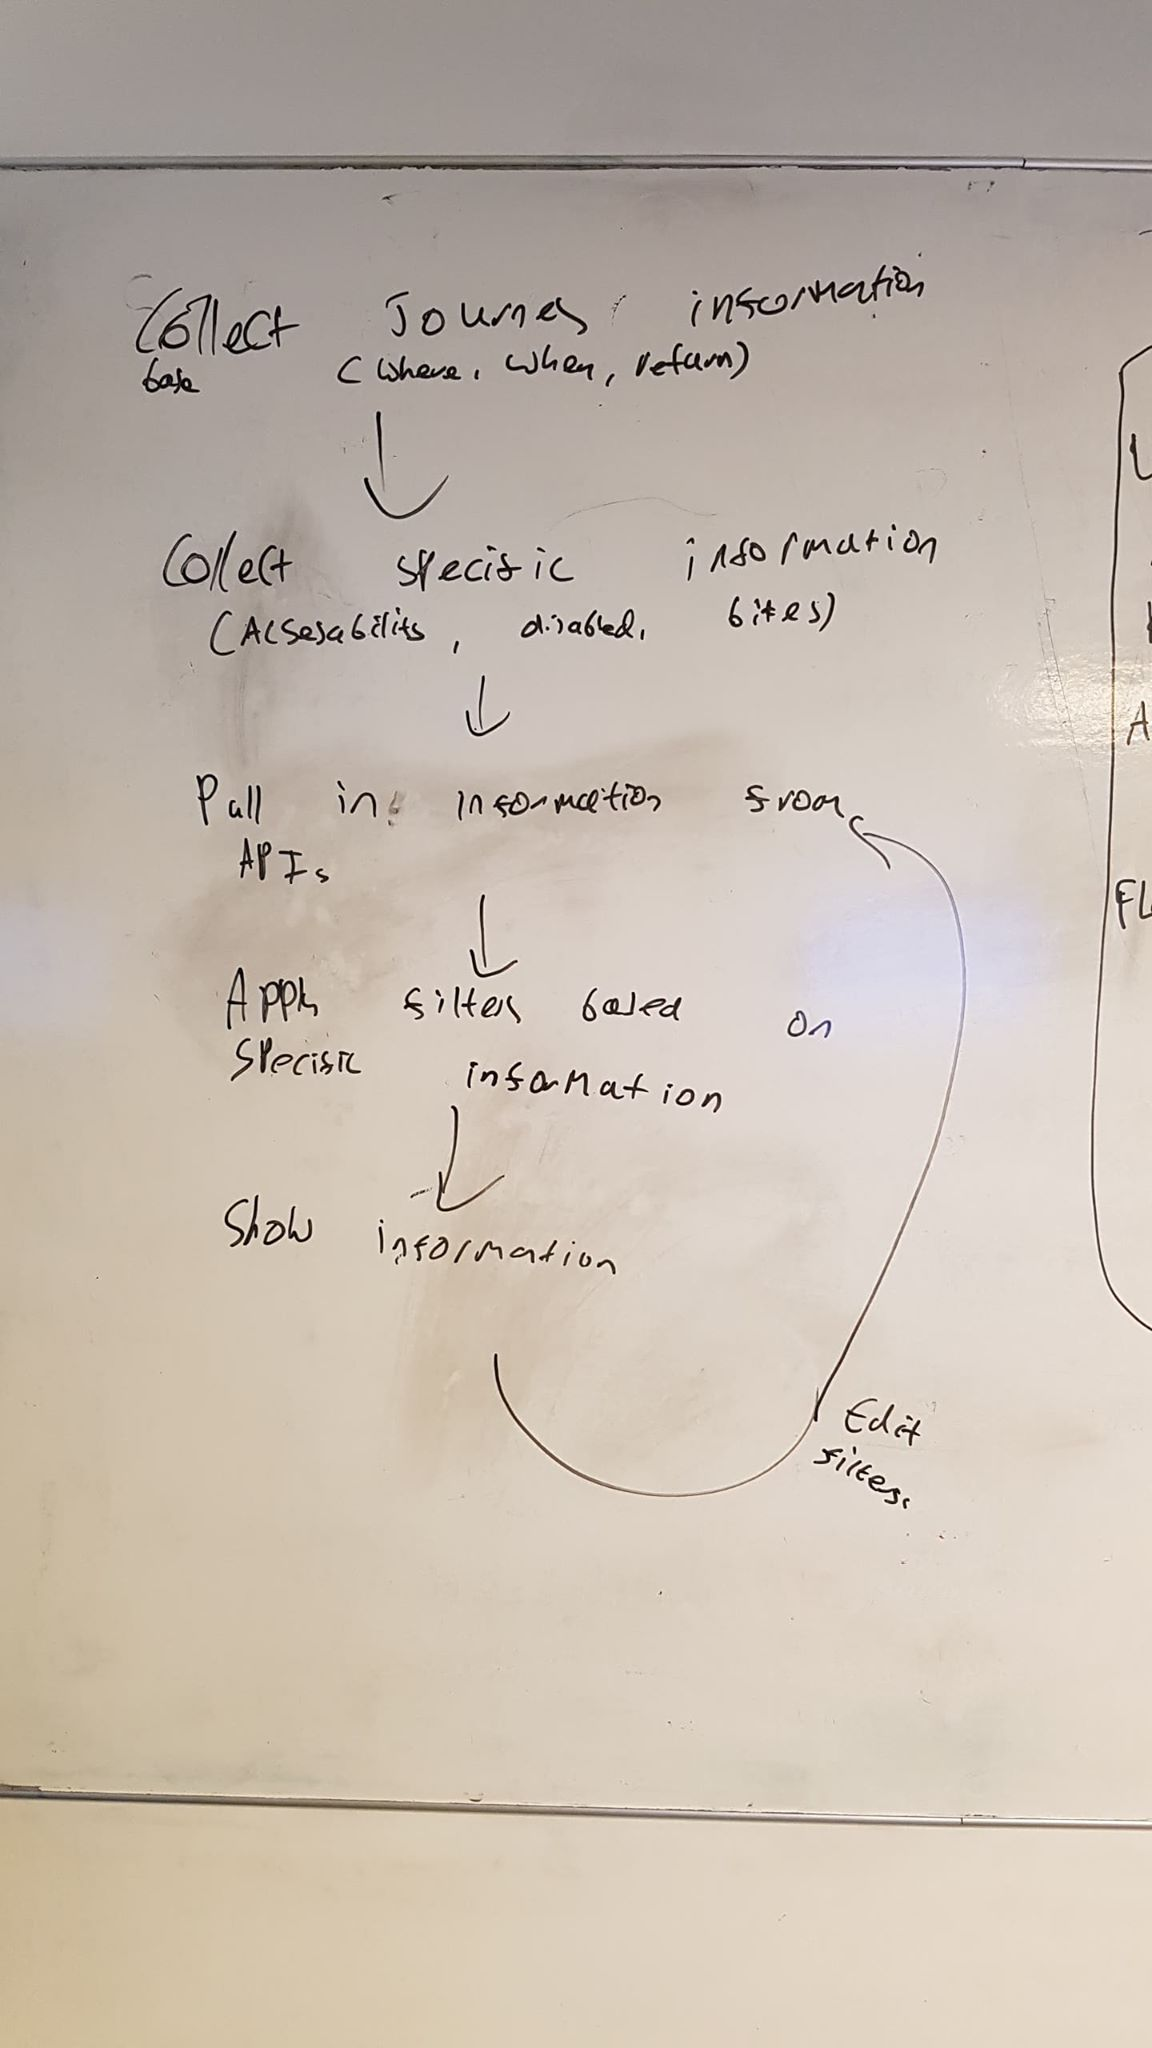 Collect Journey information
base (where, when, return)
Collect specific information
(Acsesability, disabled, bikes)
Pull in information from
APIs
Apply filters based on
specific information
Show information
Edit
filters.
A
FL